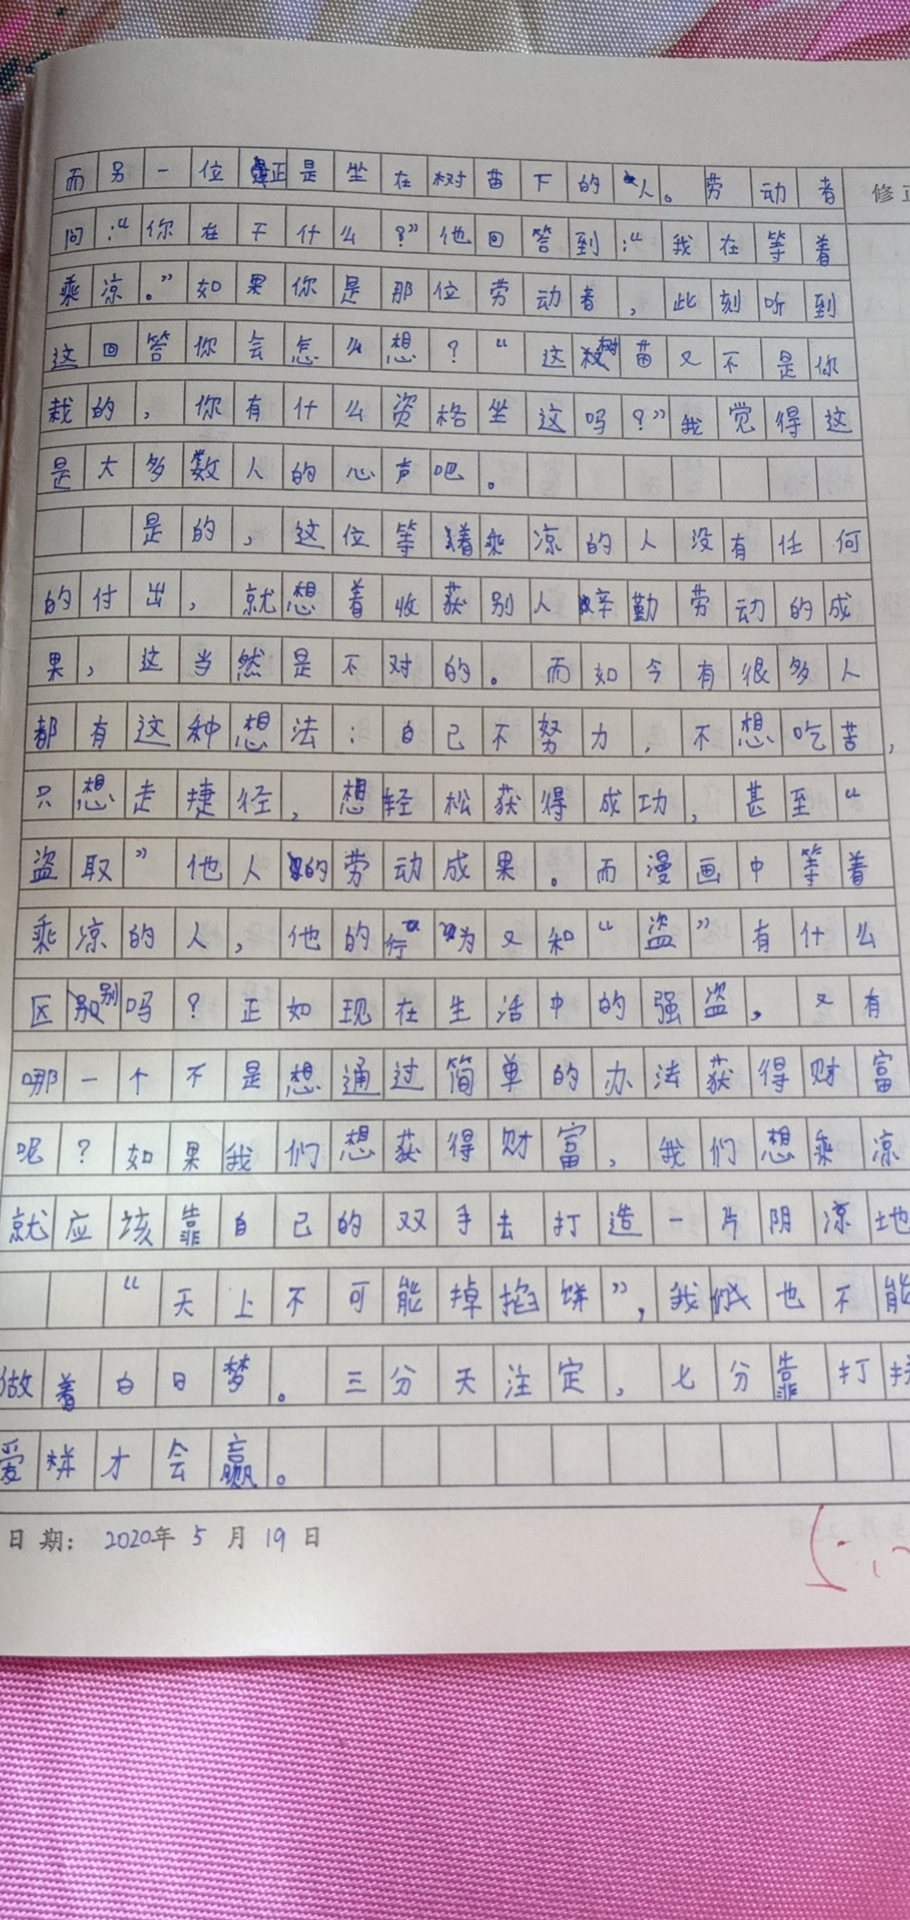 而另一位正是坐在树苗下的人。劳动者
修正
问:“你在干什么?”他回答到:“我在等着
乘凉。”如果你是那位劳动者,此刻听到
这回答你会怎么想?“这树苗又不是你
栽的,你有什么资格坐这吗?”我觉得这
是大多数人的心声吧。
是的,这位等着乘凉的人没有任何
的付出,就想着收获别人辛勤劳动的成
果,这当然是不对的。而如今有很多人
都有这种想法:自己不努力,不想吃苦,
只想走捷径,想轻松获得成功,甚至“
盗取”他人的劳动成果。而漫画中等着
乘凉的人,他的行为又和“盗”有什么
区别吗?正如现在生活中的强盗,又有
哪一个不是想通过简单的办法获得财富
呢?如果我们想获得财富,我们想乘凉
就应该靠自己的双手去打造一片阴凉地
“天上不可能掉掐饼”,我们也不能
做着白日梦。三分天注定,七分靠打拼
爱拼才会赢。
日期: 2020年5月19日